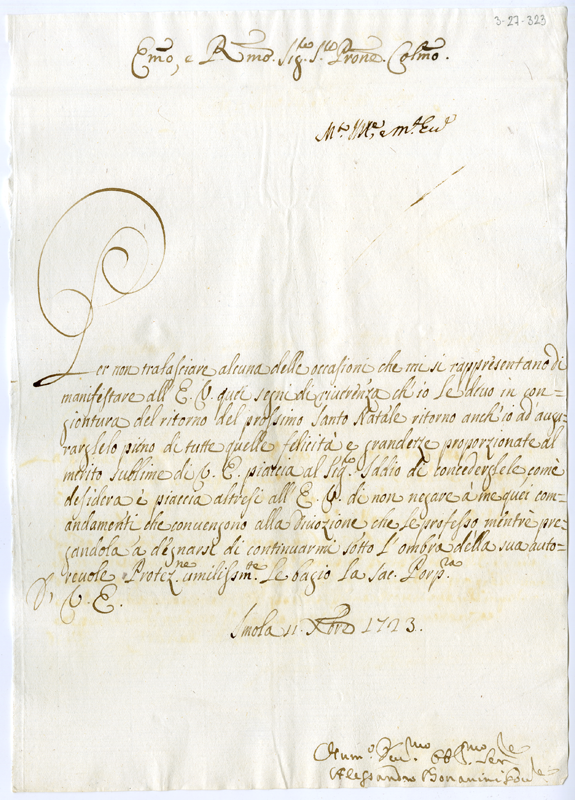 3-27-323
Emo, e Rmo. Sigre. Sre Prone. Colmo.
Per non tralasciare alcuna delle occasioni che mi si rappresentano di
manifestare all E. V. quei segni di riverenza ch'io le devo in con=
giontura del ritorno del prossimo Santo Natale ritorno anch'io ad augu=
rarglelo pieno di tutte quelle felicità e grandezze proporzionate al
merito sublime di V. E. piaccia al Sigr. Iddio di concederglele come
desidera e piaccia altresì all E. V. di non negare à me quei com=
andamenti che convengono alla divozione che le professo mentre pre=
gandola a degnarsi di continuarmi sotto l'ombra della sua auto=
revole Protezne umilissmte. Le bagio la Sac. Porpra.
D. V. E.
Imola 11 Xbre 1723.
Alessandro